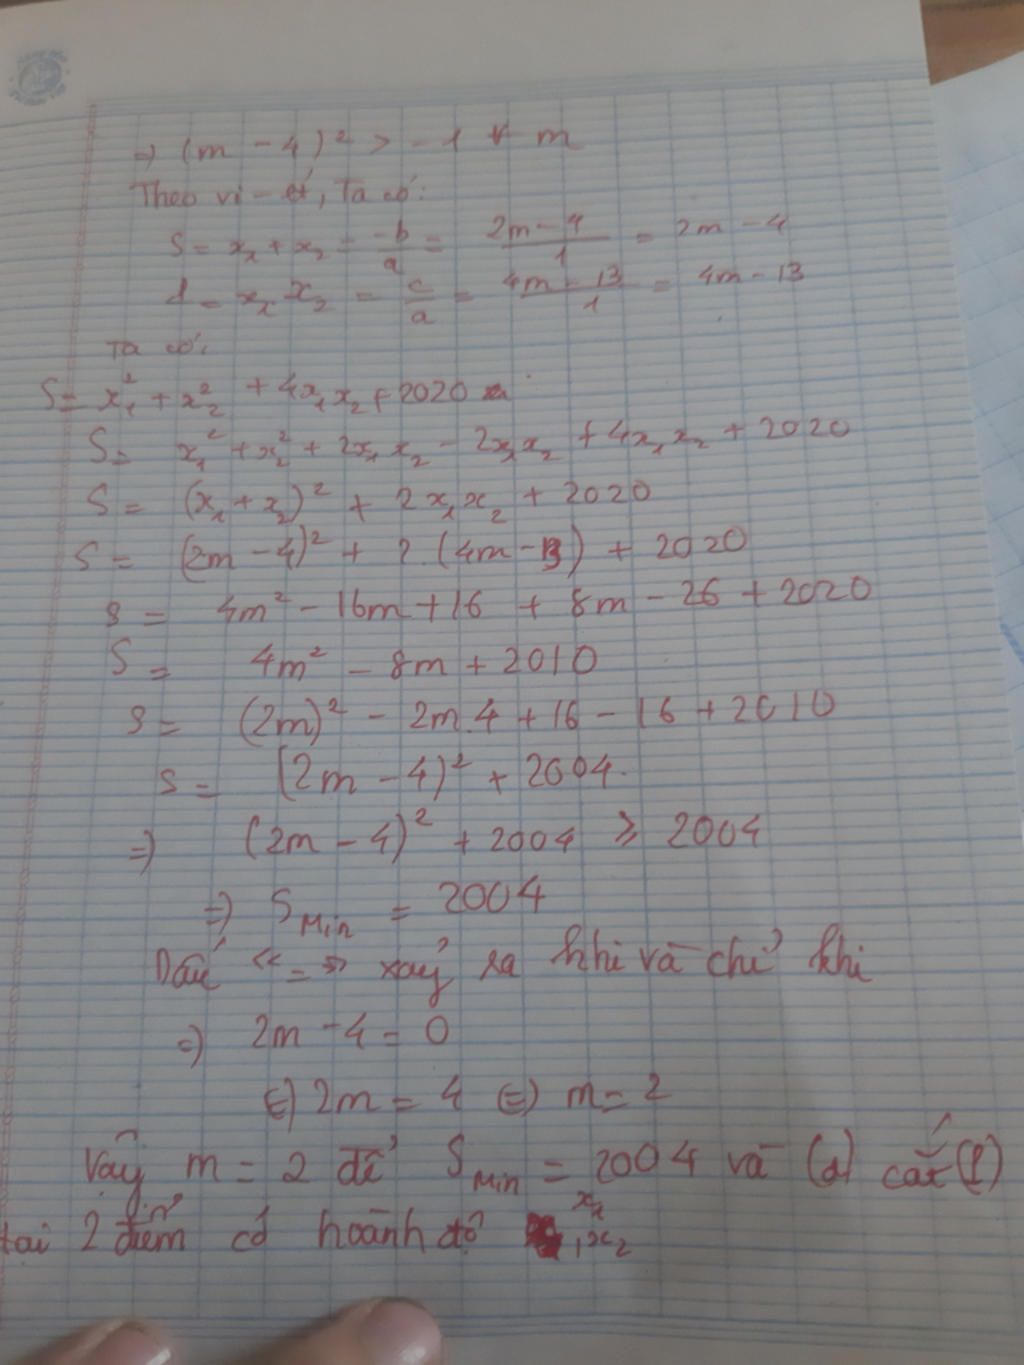 =) (m - 4)² > -1 ∀ m
Theo vi-ét, Ta có:
S = x₁ + x₂ = -b/a = 2m-4/1 = 2m - 4
P = x₁ x₂ = c/a = 4m-13/1 = 4m - 13
Ta có:
S = x₁² + x₂² + 4x₁x₂ + 2020
S = x₁² + x₂² + 2x₁x₂ - 2x₁x₂ + 4x₁x₂ + 2020
S = (x₁ + x₂)² + 2x₁x₂ + 2020
S = (2m - 4)² + 2.(4m - 13) + 2020
S = 4m² - 16m + 16 + 8m - 26 + 2020
S = 4m² - 8m + 2010
S = (2m)² - 2m.4 + 16 - 16 + 2010
S = (2m - 4)² + 2004.
=) (2m - 4)² + 2004 ≥ 2004
=) S Min = 2004
Dấu "=" xảy ra khi và chỉ khi
=) 2m - 4 = 0
(=) 2m = 4 (=) m = 2
Vậy m = 2 để S Min = 2004 và (d) cắt (P)
tại 2 điểm có hoành độ x₁, x₂